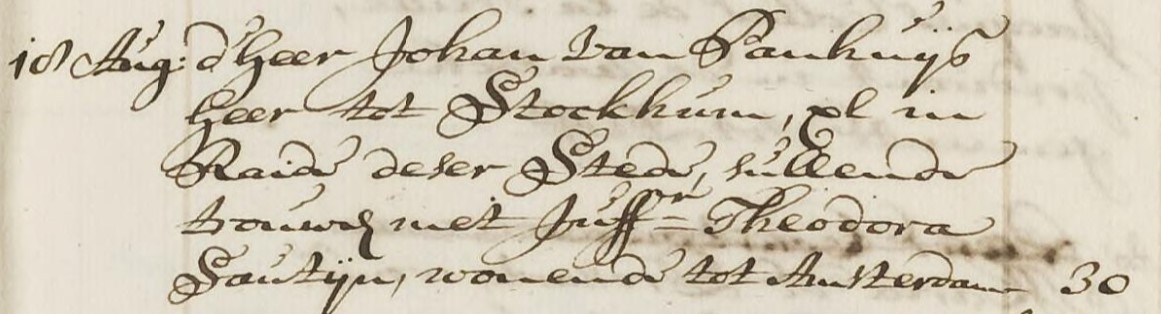 18 Aug: d'heer Johan van Panhuijs
heer tot Stockhum, in
Raide deser Stede, sullende
trouwen met Juffr = Theodora
Sautijn, wonende tot Amsterdam 30